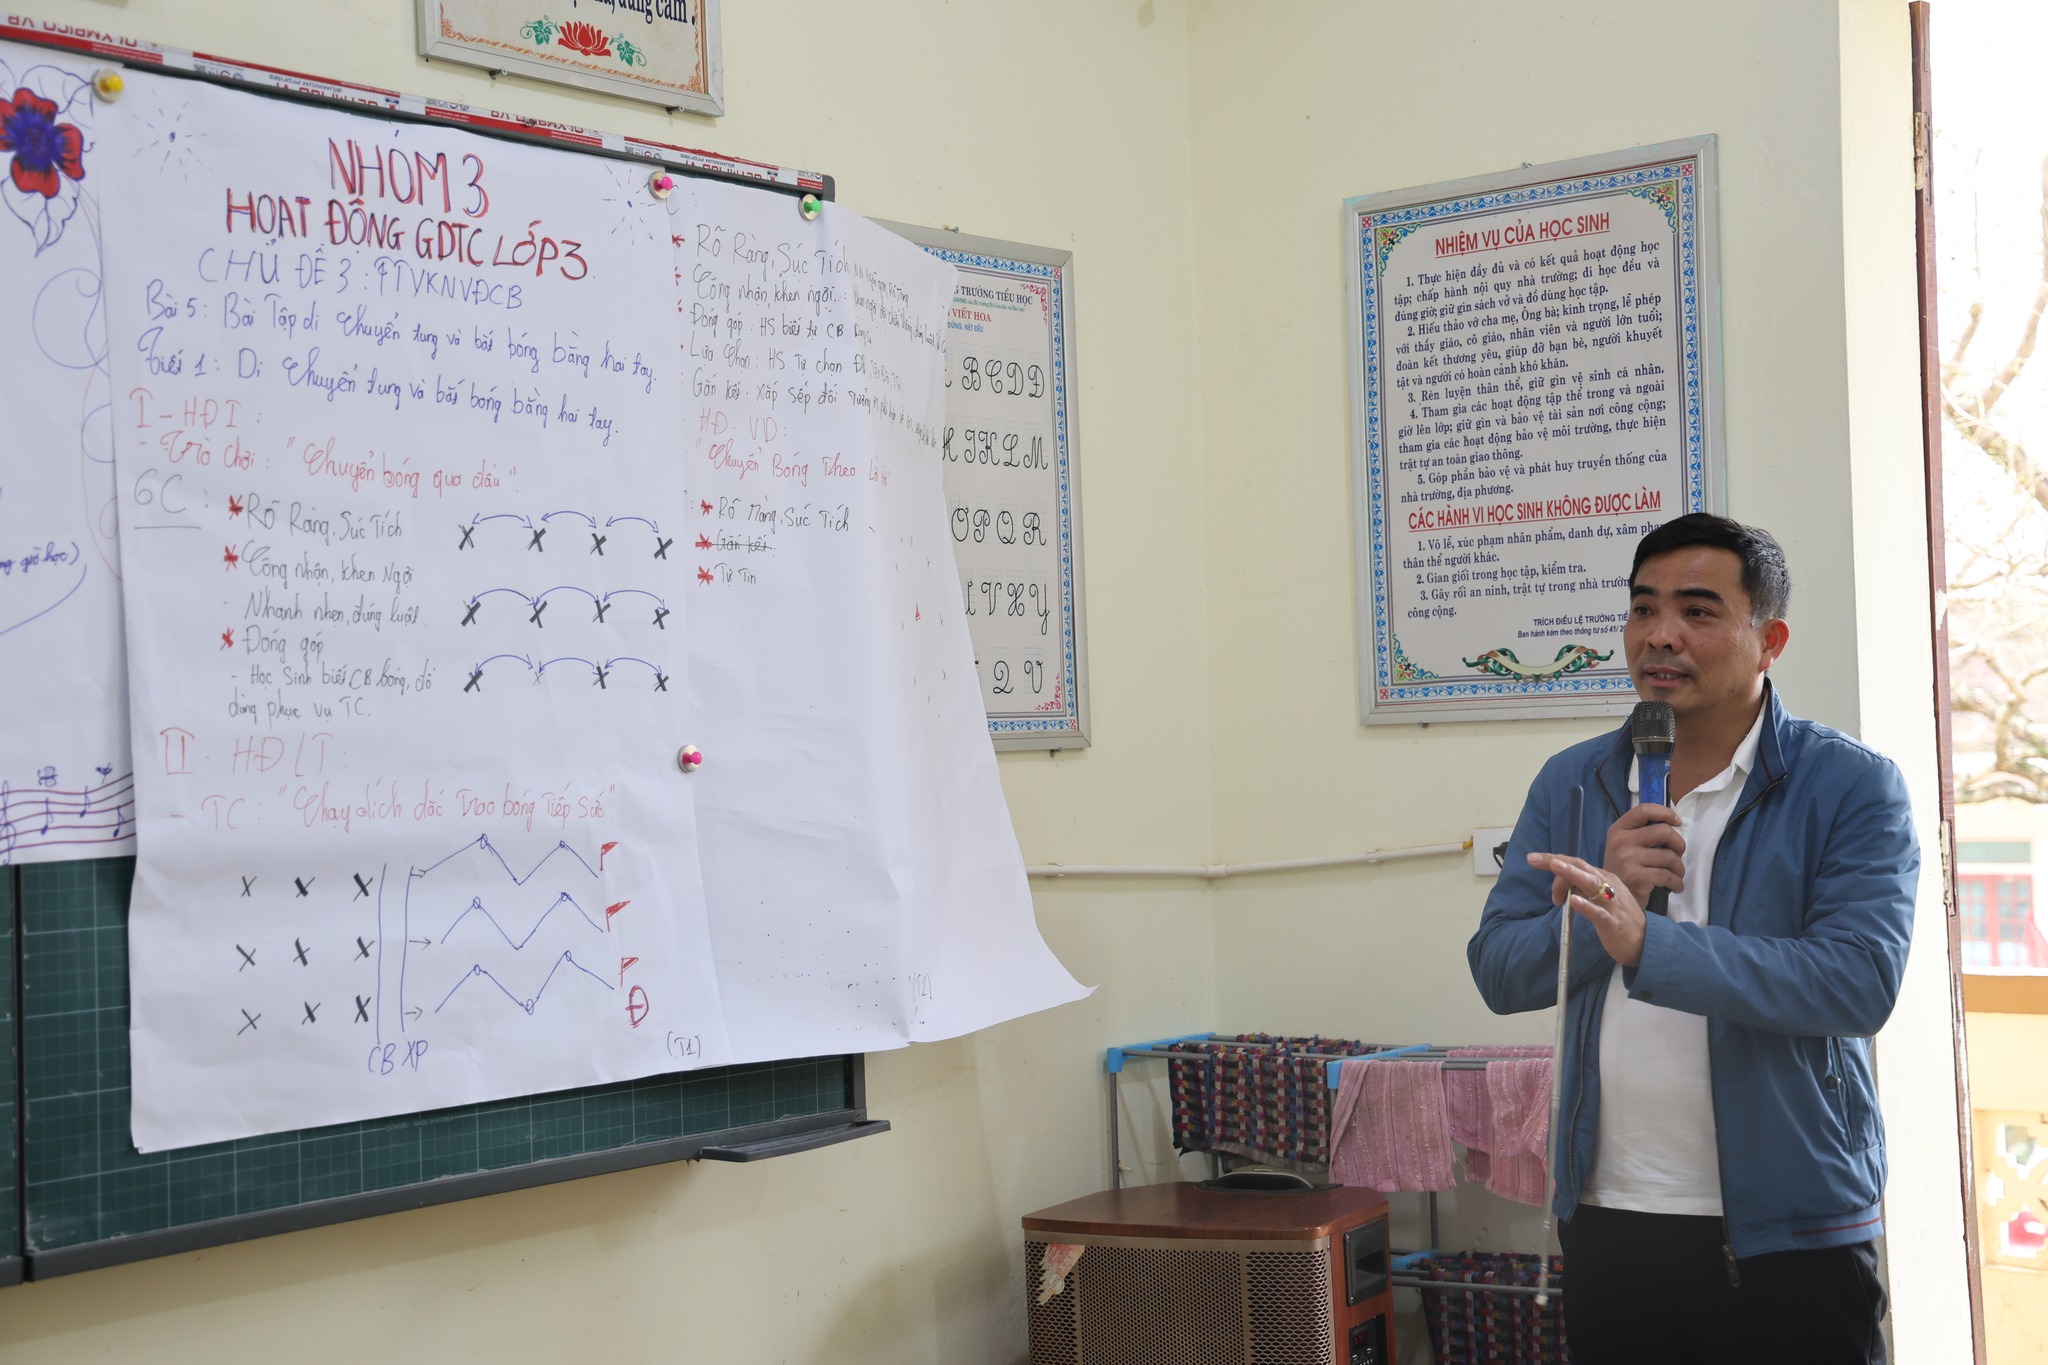 dũng cảm.
NHÓM 3
HOẠT ĐỘNG GDTC LỚP 3.
CHỦ ĐỀ 3: TTVKNVĐCB
Bài 5: Bài Tập di chuyển tung và bắt bóng bằng hai tay.
Tiết 1: Di chuyển tung và bắt bóng bằng hai tay.
I - HĐ I:
- Trò chơi: "Chuyển bóng qua đầu".
6C:
* Rõ Ràng, Súc Tích
* Công nhận, khen Ngợi
- Nhanh nhẹn, đúng luật.
* Đóng góp
- Học Sinh biết CB bóng, đồ
dùng phục vụ TC.
II - HĐ LT:
- TC: "Chạy dích dắc Trao bóng Tiếp Sức."
CB XP
Đ
(T1)
* Rõ Ràng, Súc Tích
Công nhận, khen ngợi..:
Đóng góp: HS biết tự CB Dụng cụ
Lựa Chọn: HS Tự chọn
Gắn kết: Xắp sếp đối
HĐ. VD:
"Chuyển Bóng Theo
* Rõ Ràng, Súc Tích
* Gắn kết.
* Tự Tin
(T2)
ng giờ học)
G TRƯỜNG TIỂU HỌC
VIẾT HOA
ĐÚNG, NÉT ĐỀU
B C D Đ
I K L M
O P Q R
U V X Y
Q V
NHIỆM VỤ CỦA HỌC SINH
1. Thực hiện đầy đủ và có kết quả hoạt động học
tập; chấp hành nội quy nhà trường; đi học đều và
đúng giờ; giữ gìn sách vở và đồ dùng học tập.
2. Hiếu thảo với cha mẹ, Ông bà; kính trọng, lễ phép
với thầy giáo, cô giáo, nhân viên và người lớn tuổi;
đoàn kết thương yêu, giúp đỡ bạn bè, người khuyết
tật và người có hoàn cảnh khó khăn.
3. Rèn luyện thân thể, giữ gìn vệ sinh cá nhân.
4. Tham gia các hoạt động tập thể trong và ngoài
giờ lên lớp; giữ gìn và bảo vệ tài sản nơi công cộng;
tham gia các hoạt động bảo vệ môi trường, thực hiện
trật tự an toàn giao thông.
5. Góp phần bảo vệ và phát huy truyền thống của
nhà trường, địa phương.
CÁC HÀNH VI HỌC SINH KHÔNG ĐƯỢC LÀM
1. Vô lễ, xúc phạm nhân phẩm, danh dự, xâm phạm
thân thể người khác.
2. Gian giối trong học tập, kiểm tra.
3. Gây rối an ninh, trật tự trong nhà trường
công cộng.
TRÍCH ĐIỀU LỆ TRƯỜNG TIỂ
Ban hành kèm theo thông tư số 41/